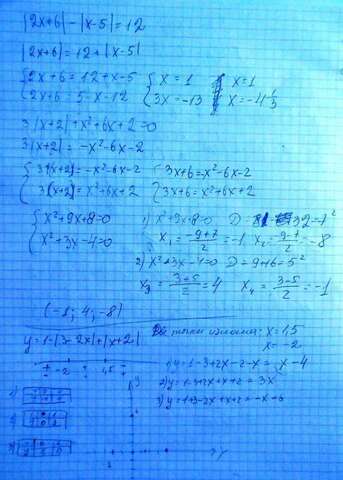 |2x+6| - |x-5| = 12
|2x+6| = 12 + |x-5|
{ 2x+6 = 12+x-5 { x = 1 x = 1
{ 2x+6 = 5-x-12 { 3x = -13 x = -4 1/3
3|x+2| + x²+6x+2 = 0
3|x+2| = -x²-6x-2
{ 3(x+2) = -x²-6x-2 { 3x+6 = -x²-6x-2
{ 3(x+2) = x²+6x+2 { 3x+6 = x²+6x+2
{ x²+9x+8=0 1) x²+9x+8=0 D = 81-32=
{ x²+3x-4=0 x₁ = (-9+7)/2 = -1 x₂ = (-9-7)/2 = -8
2) x²+3x-4=0 D = 9+16 = 5²
x₃ = (3+5)/2 = 4 x₄ = (3-5)/2 = -1
(-1; 4; -8)
y = 1-|3-2x|+|x+2| точки излома: x = 1,5
x = -2
-2 1,5
1) y = 1-3+2x-2-x = x-4
2) y = 1-3+2x+x+2 = 3x
3) y = 1+3-2x+x+2 = -x+6